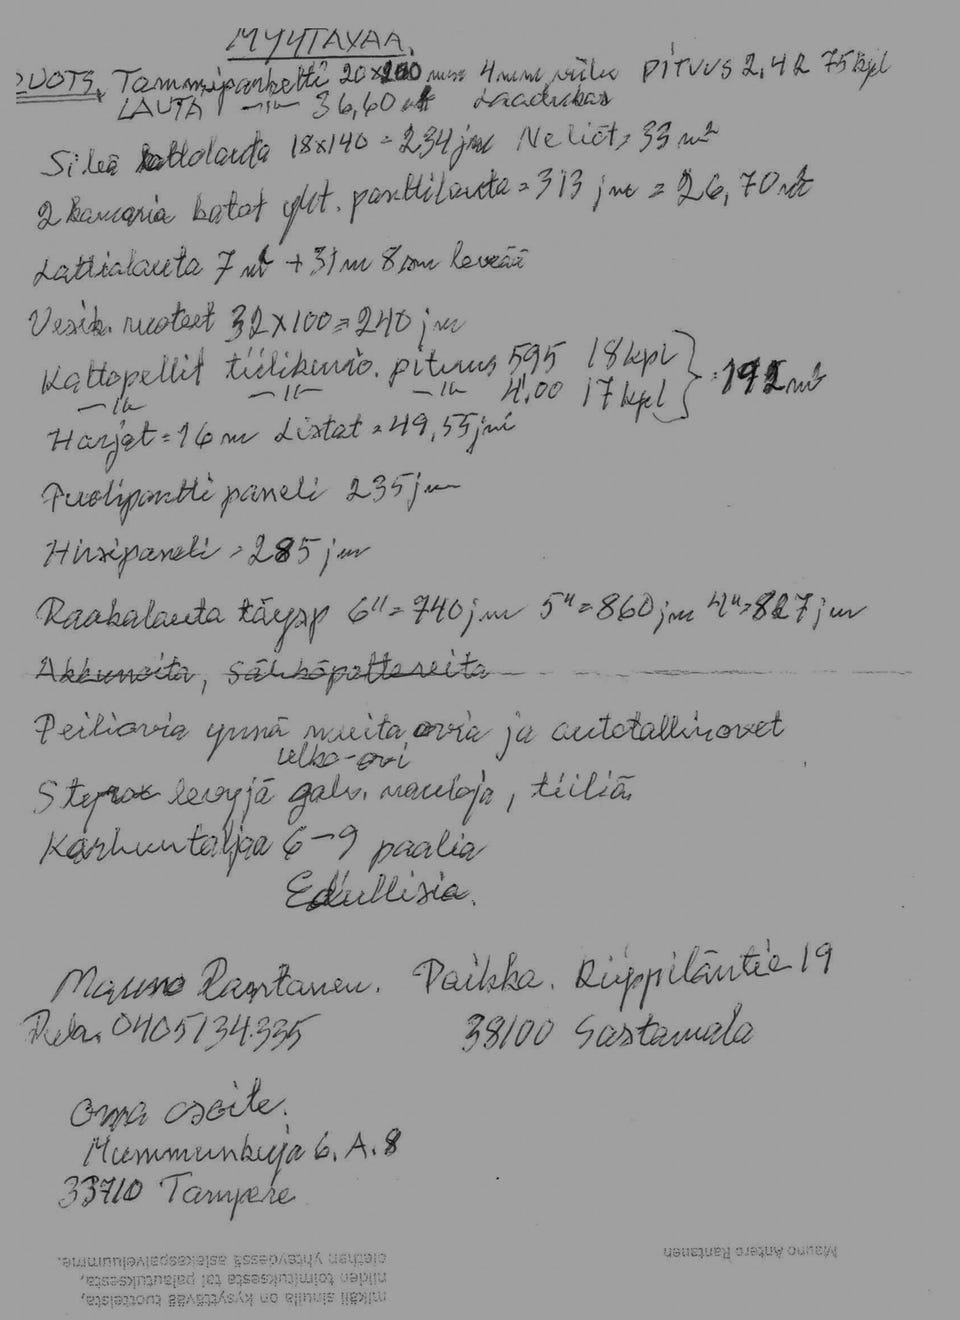 MYYTÄVÄÄ.
RUOTS. Tammiparketti 20x200 mm 4mm viilu PITUUS 2,42 75 kpl
LAUTA —"— 36,60 m² Laadukas
Sileä kattolauta 18x140 = 234 jm Neliöt = 33 m²
2 kamaria katot yht. panttilauta = 313 jm = 26,70 m²
Lattialauta 7 m² + 31m 8 cm leveää
Vesik. ruoteet 32x100 = 240 jm
Kattopellit tiilikuvio. pituus 595 18 kpl } = 192 m²
—"— —"— —"— 4,00 17 kpl
Harjat = 16 m Listat = 49,55 jm
Puolipontti paneli 235 jm
Hirsipaneli = 285 jm
Raakalauta täysp 6" = 740 jm 5" = 860 jm 4" = 827 jm
Akkunoita, Sähköpattereita
Peiliovia ynnä muita ovia ja autotallinovet
ulko-ovi
Styrox levyjä galv. nauloja, tiiliä.
Karhuntaljaa 6-9 paalia
Edullisia.
Mauno Rantanen. Paikka. Riippiläntie 19
Puh. 0405134.335 38100 Sastamala
Oma osoite.
Mummunkuja 6. A. 8
33710 Tampere
Mauno Antero Rantanen
mikäli sinulla on kysyttävää tuotteista,
niiden toimituksesta tai palautuksesta,
olethan yhteydessä asiakaspalveluumme.